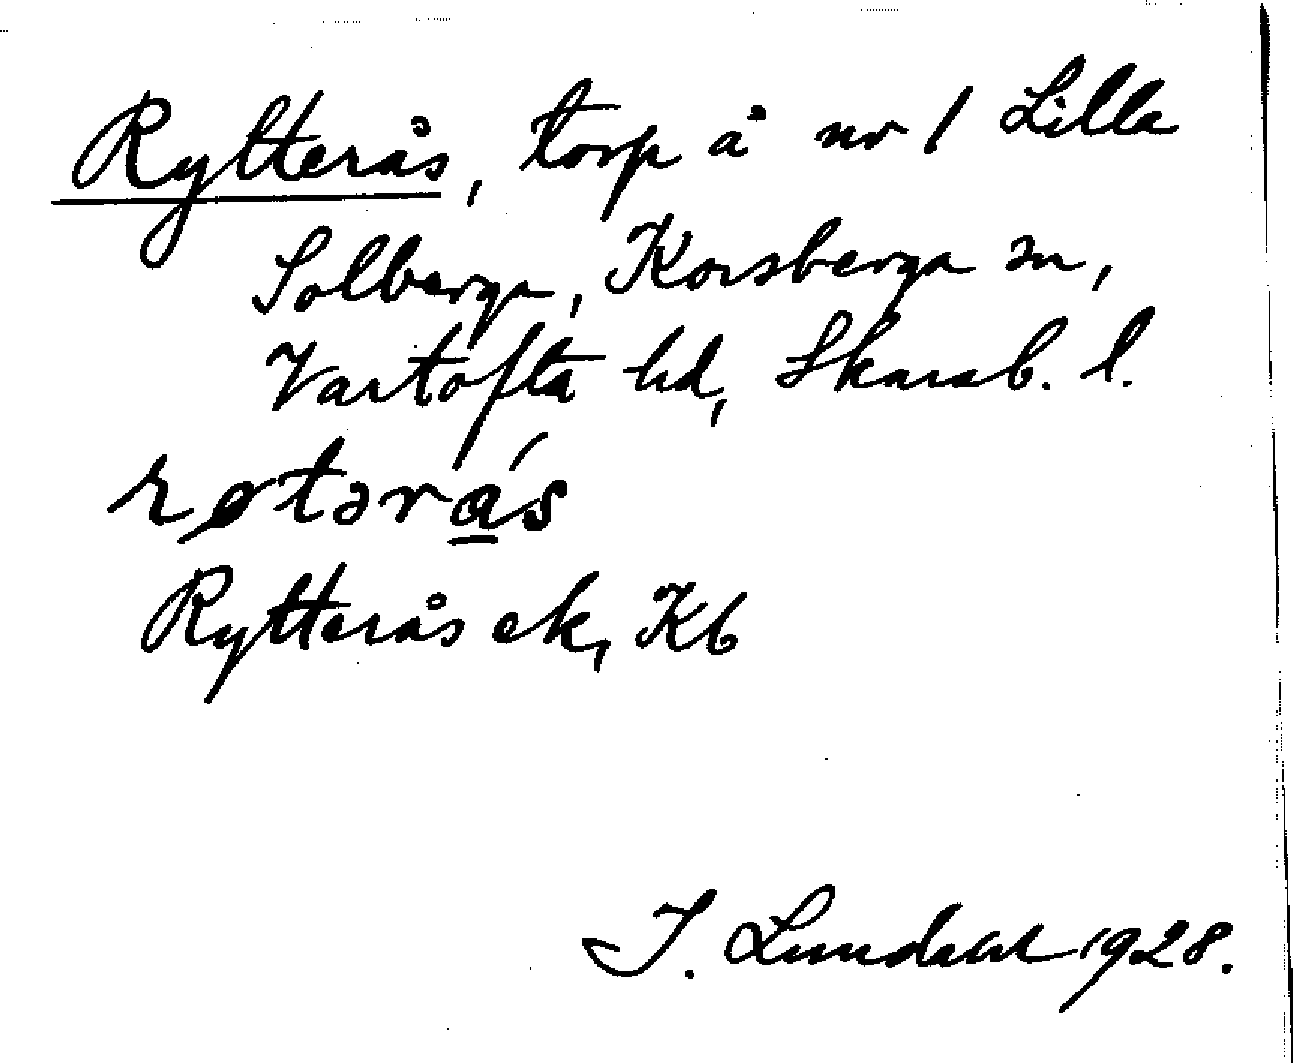 Rytterås, torp å nr 1 Lilla
Solberga, Korsberga sn,
Vartofta hd, Skarab. l.
røtərás
Rytterås ek, Kb
I. Lundahl 1928.